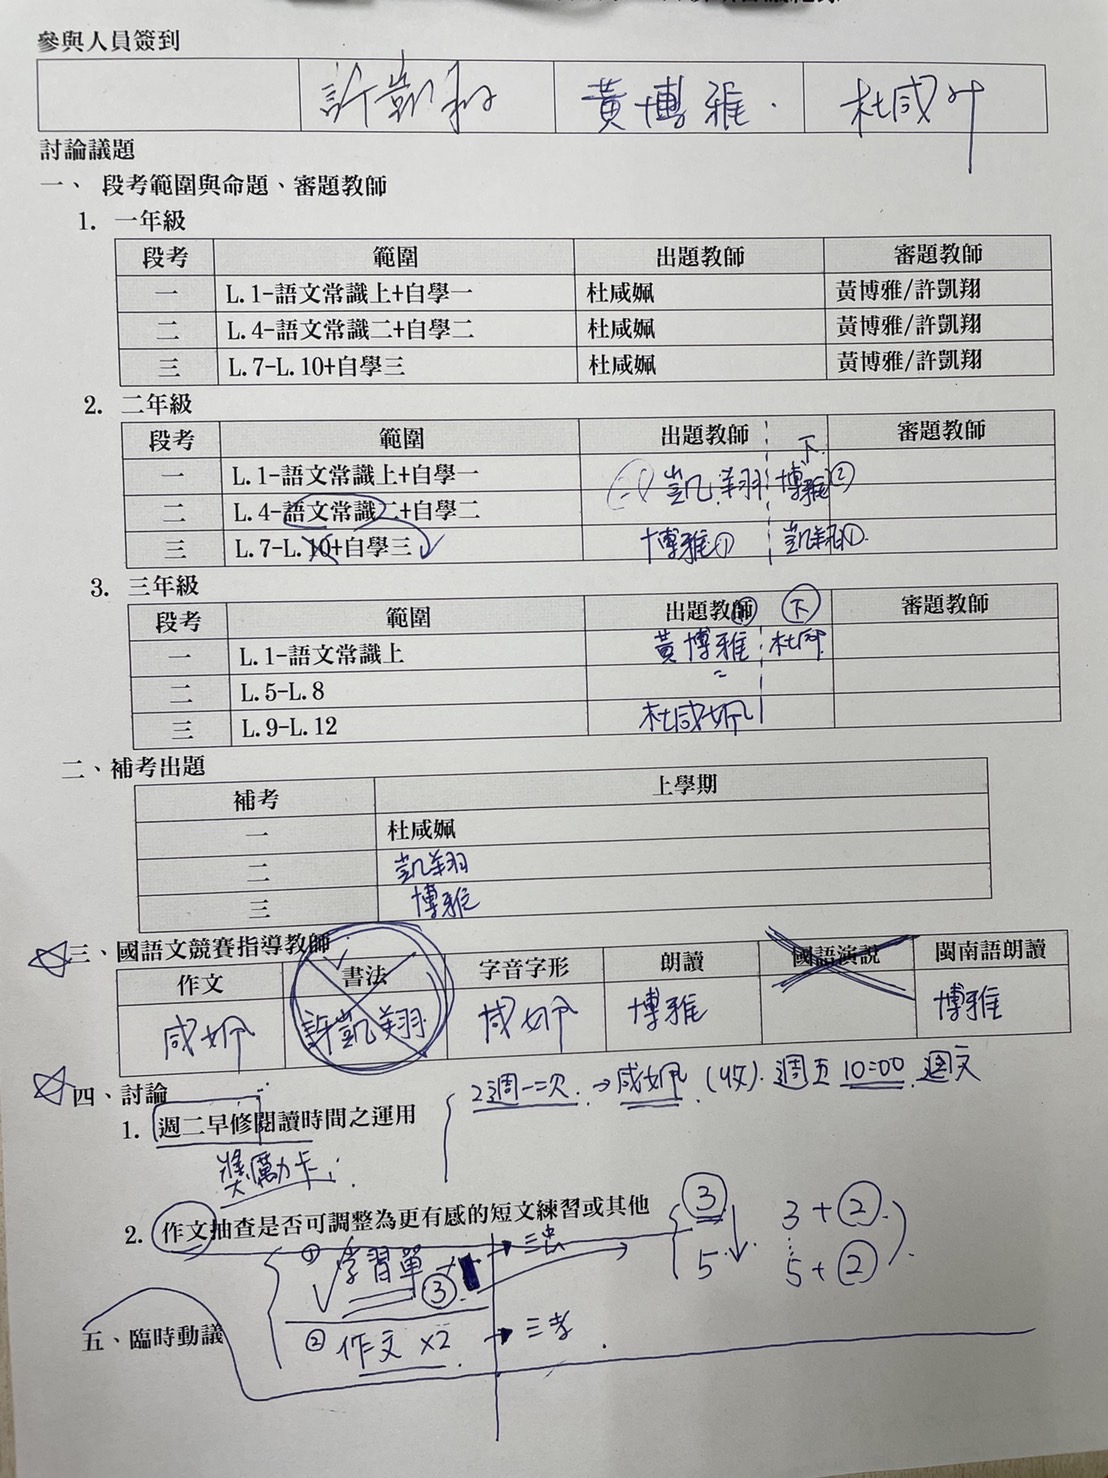 參與人員簽到
許凱翔 黃博雅. 杜咸姵
討論議題
一、 段考範圍與命題、審題教師
1. 一年級
段考 範圍 出題教師 審題教師
一 L.1-語文常識上+自學一 杜咸姵 黃博雅/許凱翔
二 L.4-語文常識二+自學二 杜咸姵 黃博雅/許凱翔
三 L.7-L.10+自學三 杜咸姵 黃博雅/許凱翔
2. 二年級
段考 範圍 出題教師 下 審題教師
一 L.1-語文常識上+自學一 凱翔 博雅②
二 L.4-語文常識二+自學二
三 L.7-L.10+自學三 博雅① 凱翔①.
3. 三年級
段考 範圍 出題教師 下 審題教師
一 L.1-語文常識上 黃博雅 杜咸
二 L.5-L.8 =
三 L.9-L.12 杜咸姵
二、補考出題
補考 上學期
一 杜咸姵
二 凱翔
三 博雅
三、國語文競賽指導教師
作文 書法 字音字形 朗讀 國語演說 閩南語朗讀
咸姵 許凱翔 咸姵 博雅 博雅
四、討論
2週一次. → 咸姵 (收). 週五 10:00.
1. 週二早修閱讀時間之運用
獎勵卡
2. 作文抽查是否可調整為更有感的短文練習或其他
③ 3+②
5 5+②
① 學習單 → 三忠
③
五、臨時動議
② 作文 x2 → 三孝